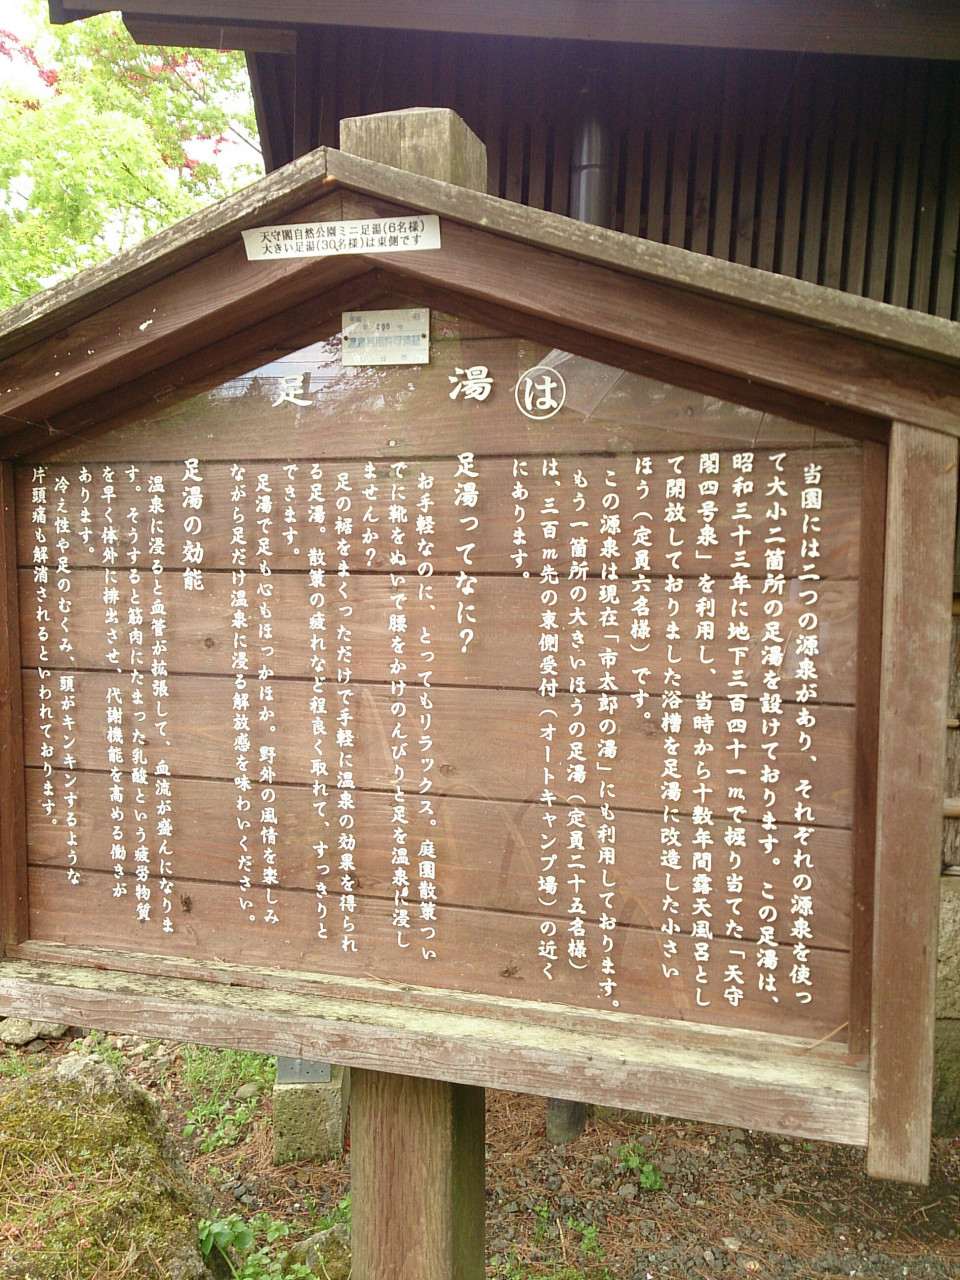 天守閣自然公園ミニ足湯(6名様)
大きい足湯(30名様)は東側です
は 湯 足
当園には二つの源泉があり、それぞれの源泉を使っ
て大小二箇所の足湯を設けております。この足湯は、
昭和三十三年に地下三百四十一mで掘り当てた「天守
閣四号泉」を利用し、当時から十数年間露天風呂とし
て開放しておりました浴槽を足湯に改造した小さい
ほう(定員六名様)です。
この源泉は現在「市太郎の湯」にも利用しております。
もう一箇所の大きいほうの足湯(定員二十五名様)
は、三百m先の東側受付(オートキャンプ場)の近く
にあります。
足湯ってなに?
お手軽なのに、とってもリラックス。庭園散策つい
でに靴をぬいで腰をかけのんびりと足を温泉に浸し
ませんか?
足の裾をまくっただけで手軽に温泉の効果を得られ
る足湯。散策の疲れなど程良く取れて、すっきりと
できます。
足湯で足も心もほっかほか。野外の風情を楽しみ
ながら足だけ温泉に浸る解放感を味わいください。
足湯の効能
温泉に浸ると血管が拡張して、血流が盛んになりま
す。そうすると筋肉にたまった乳酸という疲労物質
を早く体外に排出させ、代謝機能を高める働きが
あります。
冷え性や足のむくみ、頭がキンキンするような
片頭痛も解消されるといわれております。